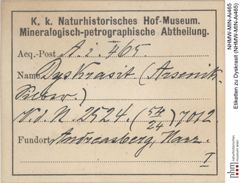 K. k. Naturhistorisches Hof-Museum.
Mineralogisch-petrographische Abtheilung.
Acq.-Post A. i. 465.
Name Dyskrasit (Arsenik-
silber).
V.d.N. 2524. (54/24) 7012.
Fundort Andreasberg, Harz.
I
NHMW-MIN-Ai465
Etiketten zu Dyskrasit (NHMW-MIN-Ai465)